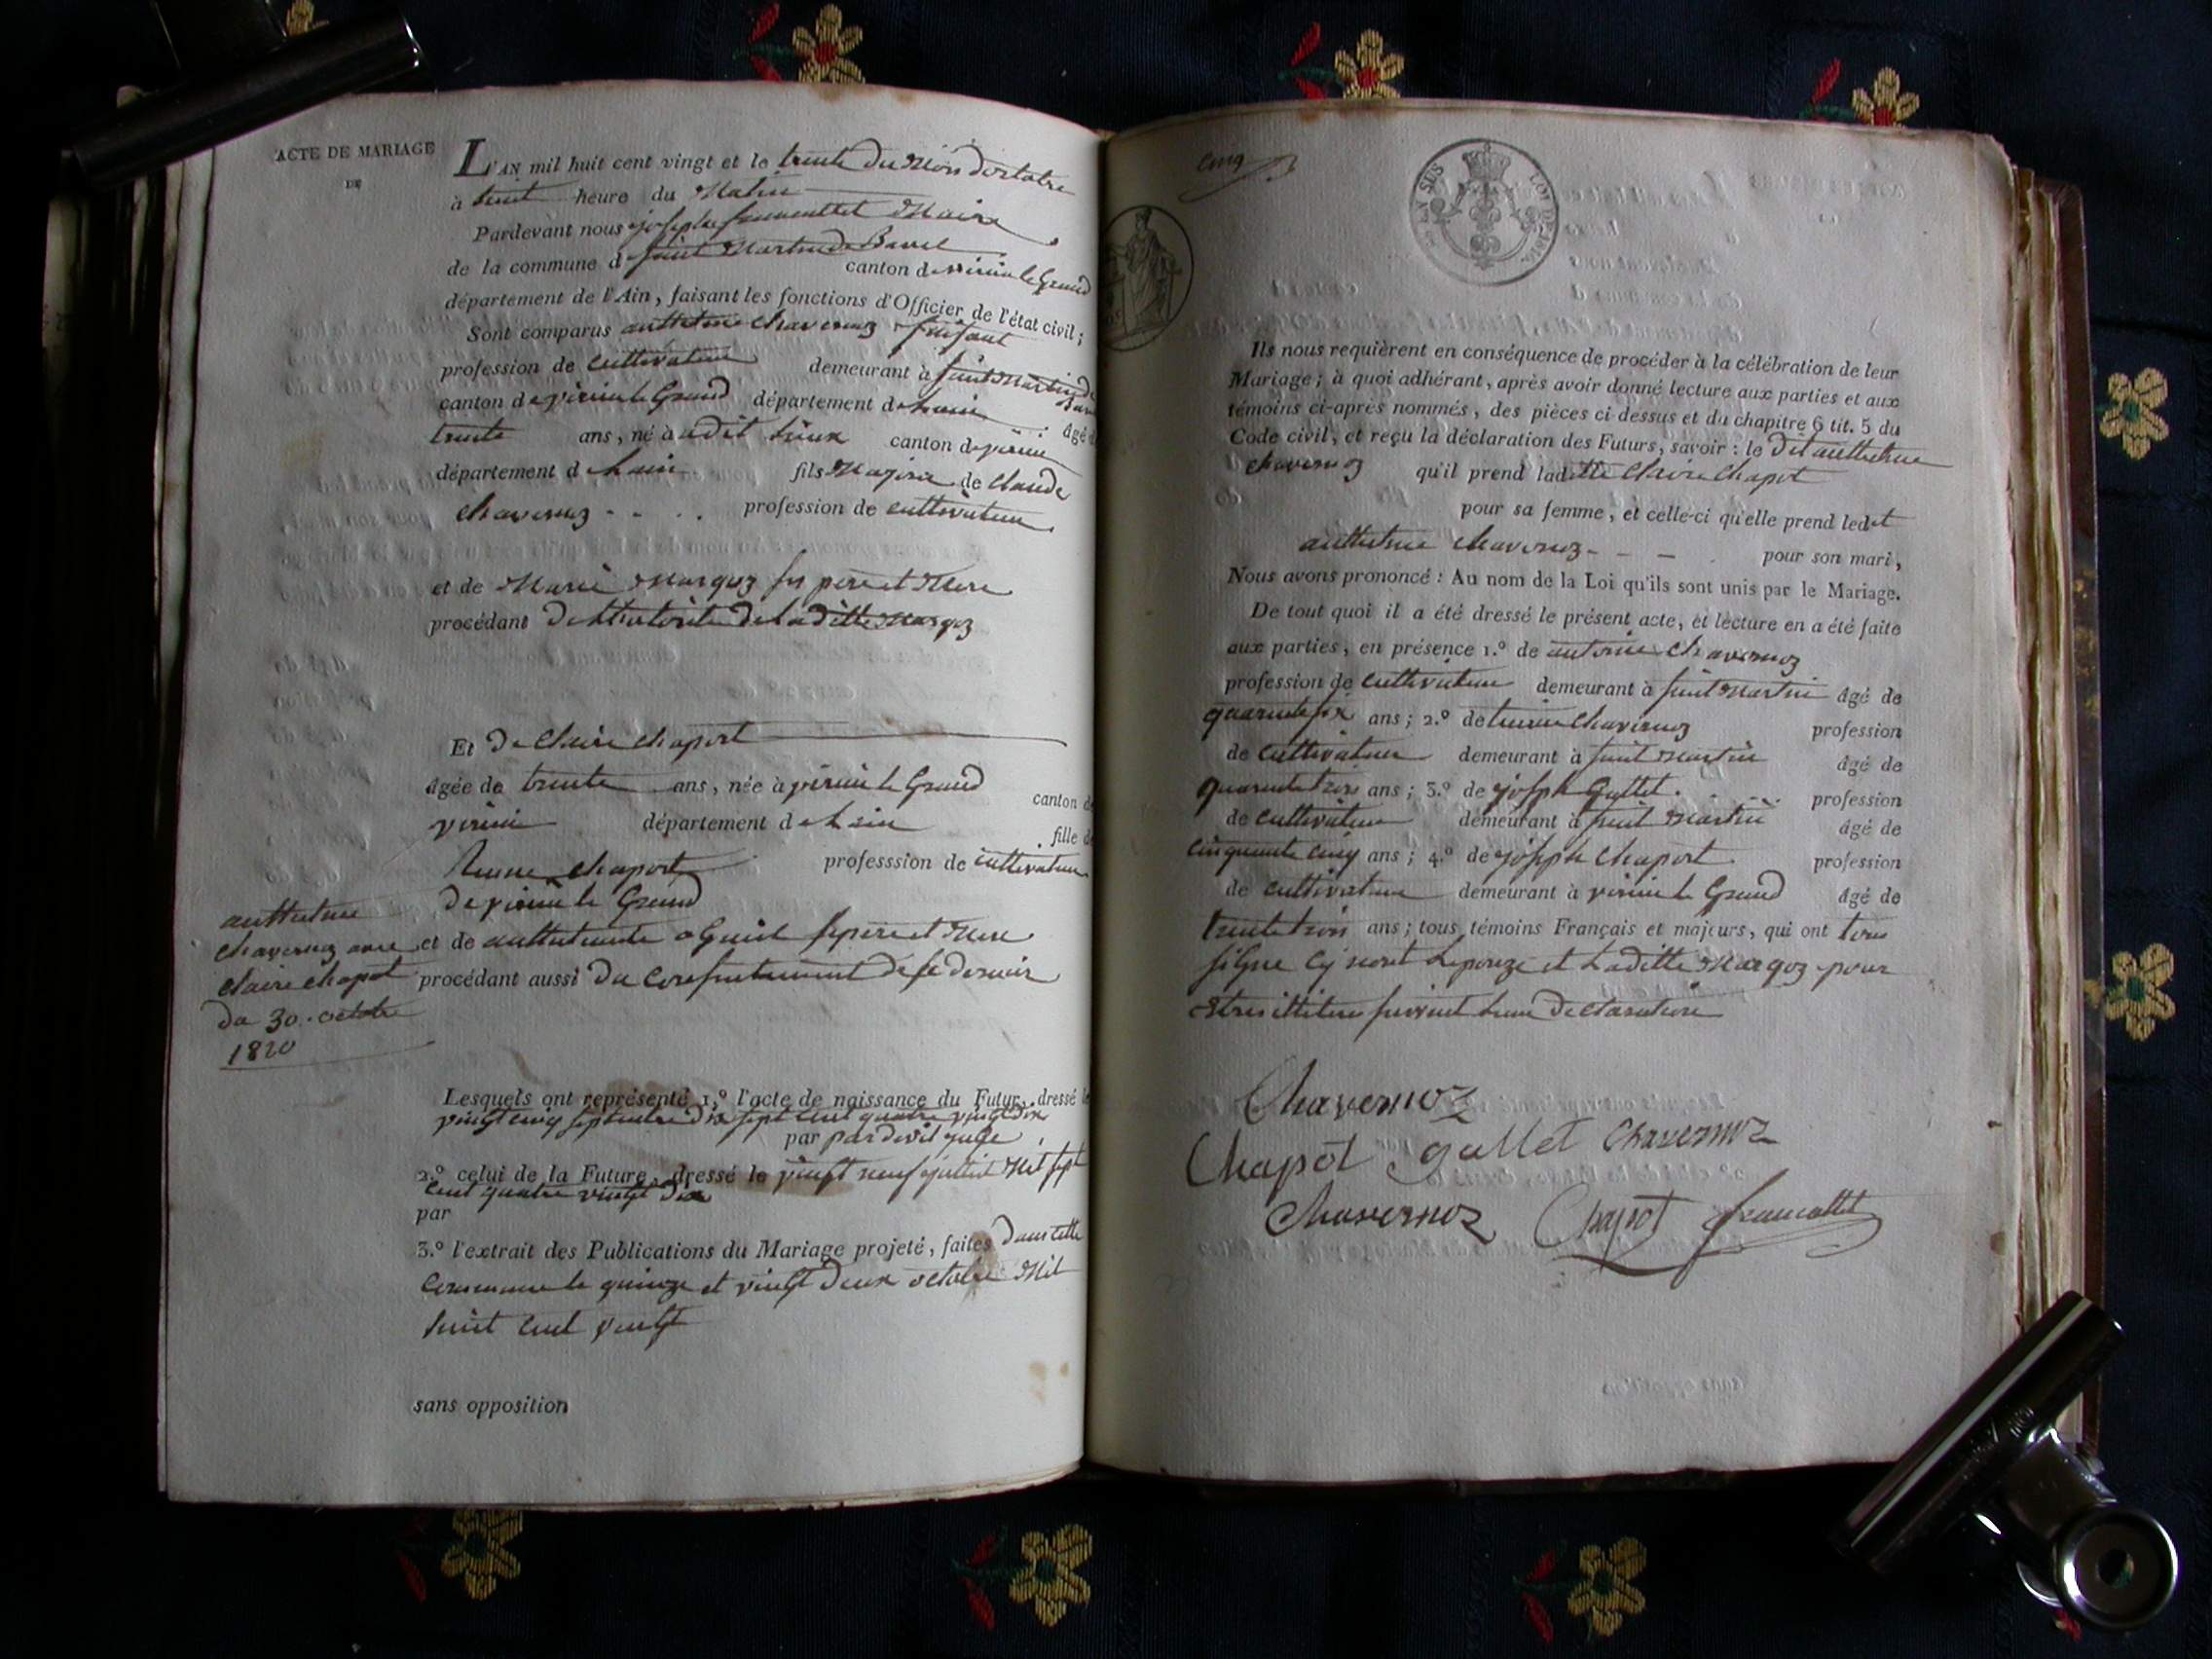 ACTE DE MARIAGE
DE
L'AN mil huit cent vingt et le trente du mois doctobre
à huit heure du Matin
Pardevant nous joseph Maire
de la commune d Saint Martin de Bavel canton de virieu le Grand
département de l'Ain, faisant les fonctions d'Officier de l'état civil;
Sont comparus anthelme chavernoz
profession de cultivateur demeurant à Saint Martin de Bavel
canton de virieu le Grand département de Lain âgé d
trente ans, né audit lieux canton de virieu
département de Lain fils Majeur de claude
chavernoz - - . . profession de cultivateur
et de Marie Marquz ses pere et Mere
procédant de laditte
Et de claire chaport
âgée de trente ans, née à virieu le Grand canton de
virieu département de Lain fille de
chaport professsion de cultivateur
de virieu le Grand
et de pere et Mere
procédant aussi du consentement de
anthelme
chavernoz avec
claire chapot
du 30 octobre
1820
Lesquels ont représenté 1.º l'acte de naissance du Futur, dressé le
vingt cinq septembre dix sept cent quatre vingt dix
par par
2.º celui de la Future, dressé le vingt neuf juillet Mil sept
cent quatre vingt dix
par
3.º l'extrait des Publications du Mariage projeté, faites dans cette
commune le quinze et vingt deux octobre Mil
huit cent vingt
sans opposition
cinq
EN SUS
LOI DE 1816
Ils nous requièrent en conséquence de procéder à la célébration de leur
Mariage; à quoi adhérant, après avoir donné lecture aux parties et aux
témoins ci-après nommés, des pièces ci dessus et du chapitre 6 tit. 5 du
Code civil, et reçu la déclaration des Futurs, savoir: le dit anthelme
chavernoz qu'il prend laditte claire chapot
pour sa femme, et celle-ci qu'elle prend ledit
anthelme chavernoz - - - pour son mari,
Nous avons prononcé: Au nom de la Loi qu'ils sont unis par le Mariage.
De tout quoi il a été dressé le présent acte, et lecture en a été faite
aux parties, en présence 1.º de antoine chavernoz
profession de cultivateur demeurant à saint Martin âgé de
quarante six ans; 2.º de chavernoz profession
de cultivateur demeurant à saint Martin âgé de
quarante trois ans; 3.º de joseph Gullet profession
de cultivateur demeurant à saint Martin âgé de
cinquante cinq ans; 4.º de joseph chaport profession
de cultivateur demeurant à virieu le Grand âgé de
trente trois ans; tous témoins Français et majeurs, qui ont tous
signe et laditte Marquz pour
suivant leur declaration
Chavernoz
Chapot gullet Chavernoz
Chavernoz Chapot